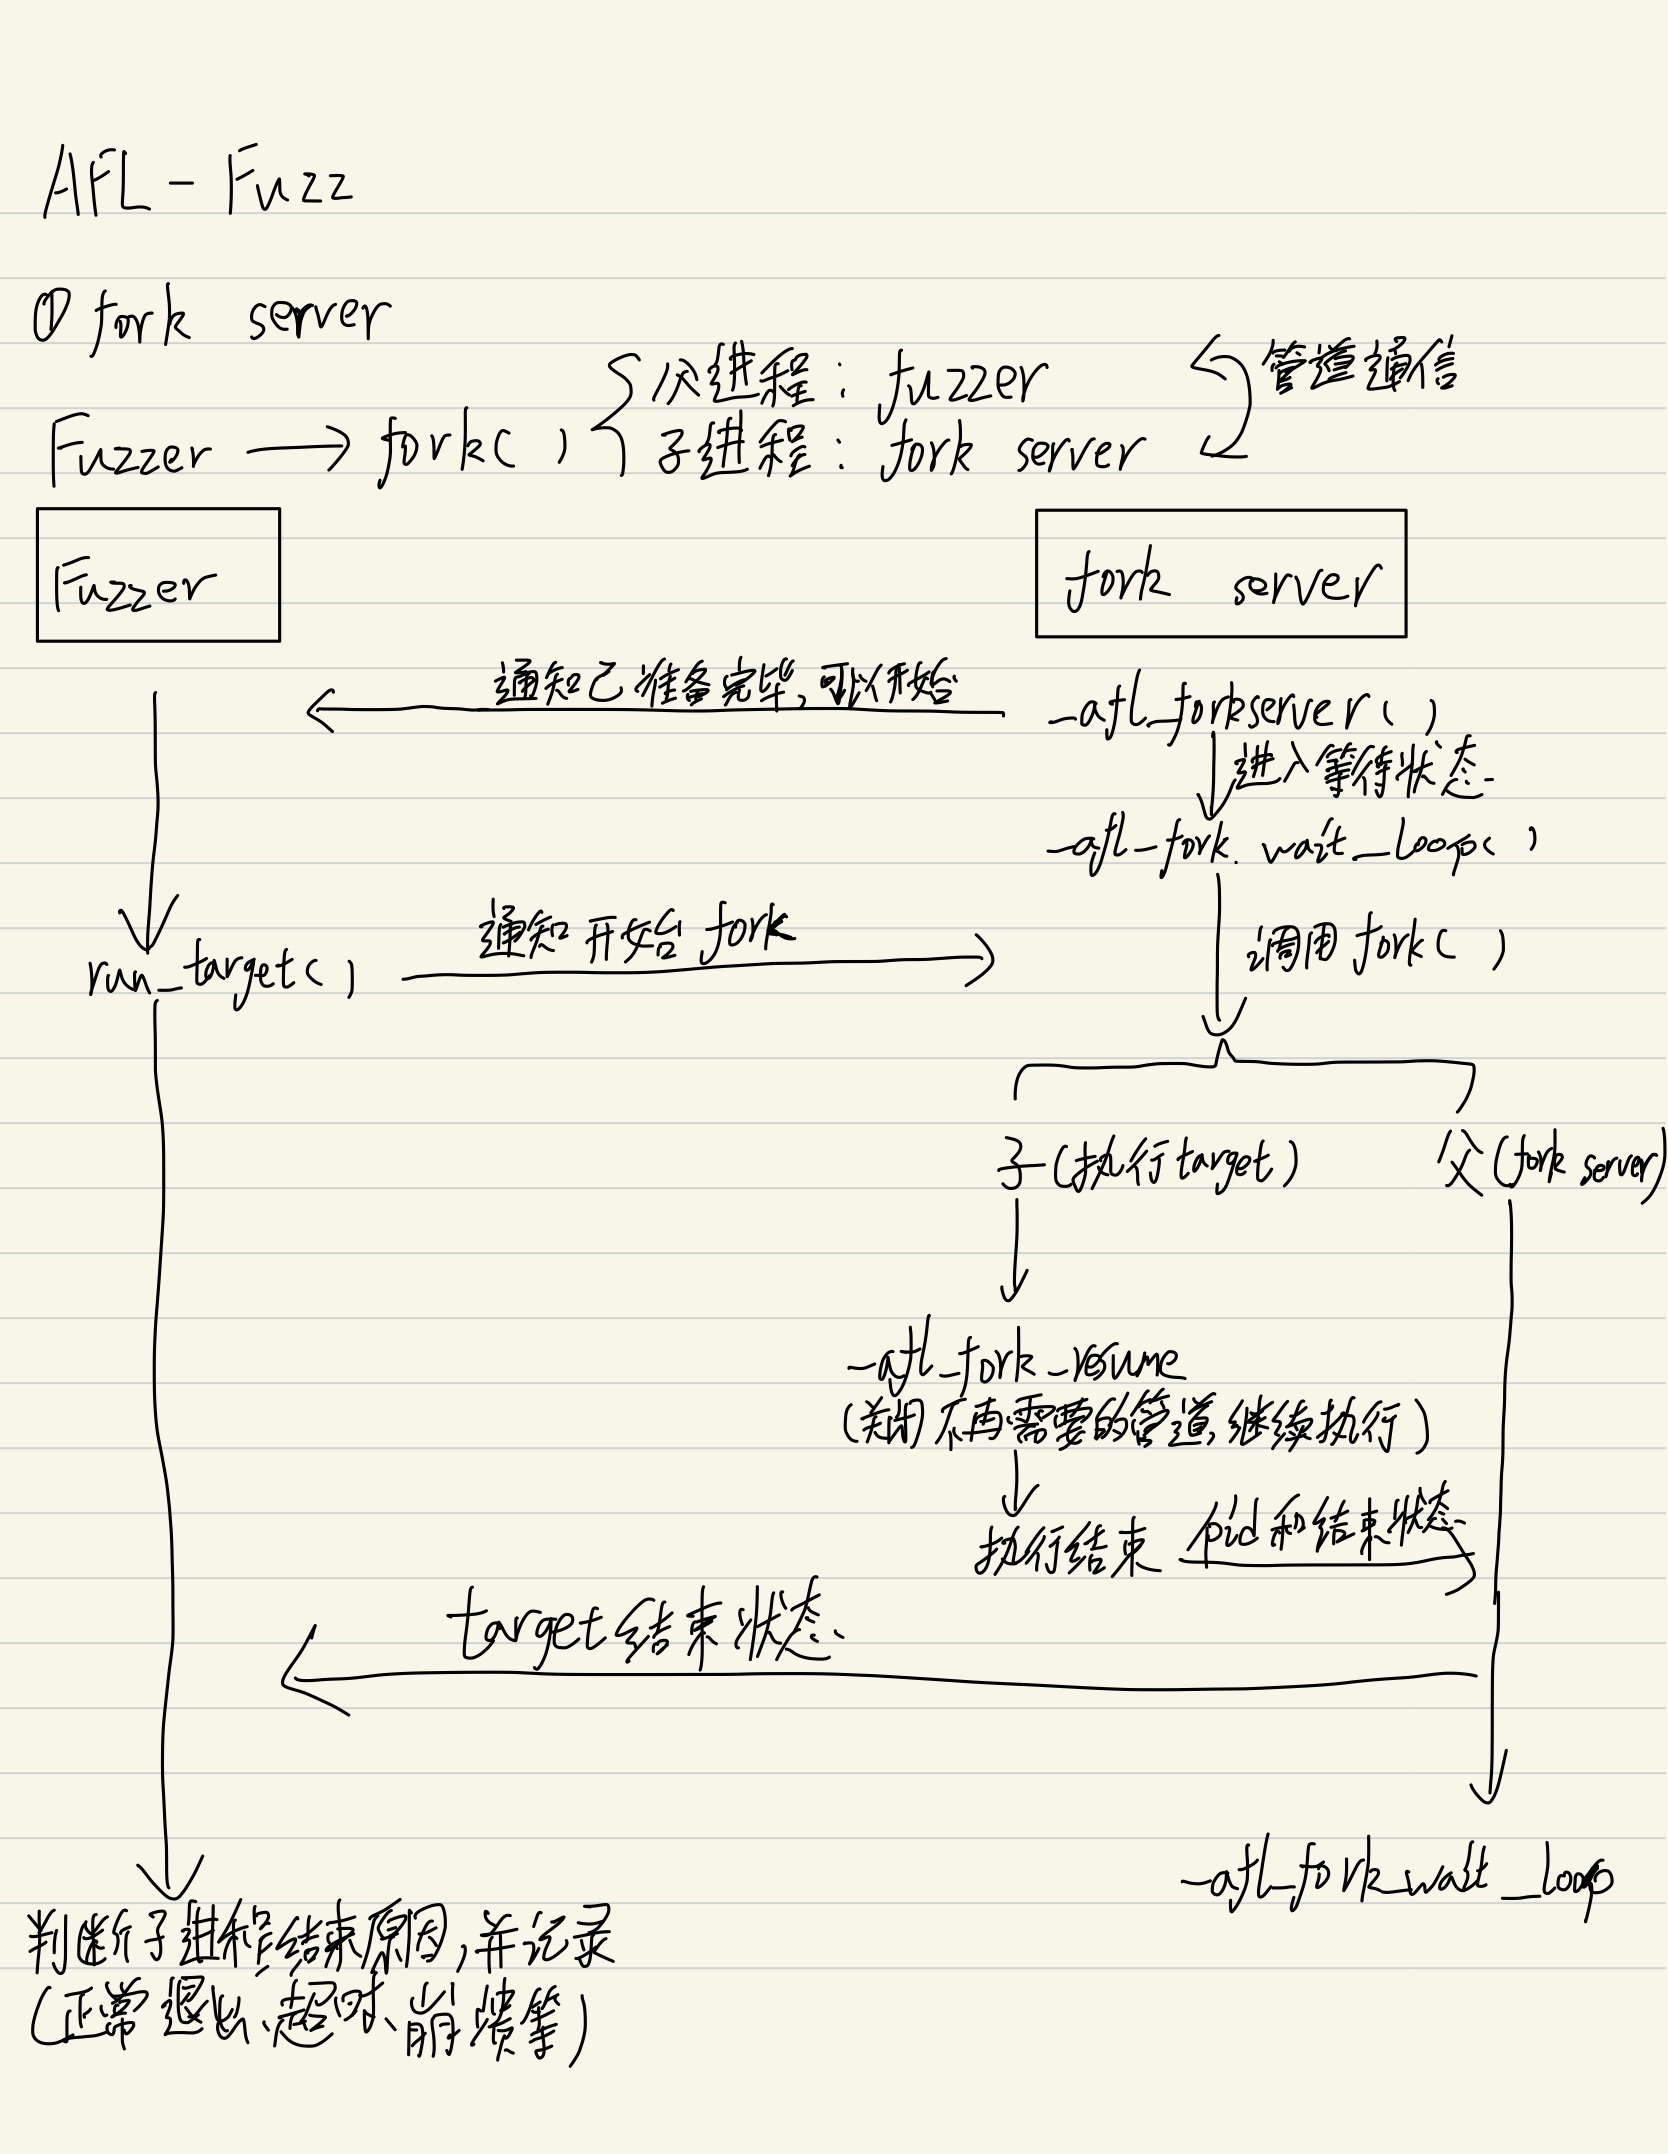 AFL-Fuzz
① fork server
管道通信
父进程: fuzzer
Fuzzer → fork() 子进程: fork server
Fuzzer
fork server
通知已准备完毕,可以开始
_afl_forkserver()
进入等待状态
_afl_fork_wait_loop()
通知开始 fork
run_target()
调用 fork()
子(执行target)
父(fork server)
_afl_fork_resume
(关闭不再需要的管道,继续执行)
执行结束
pid和结束状态
target结束状态
_afl_fork_wait_loop
判断子进程结束原因,并记录
(正常退出、超时、崩溃等)